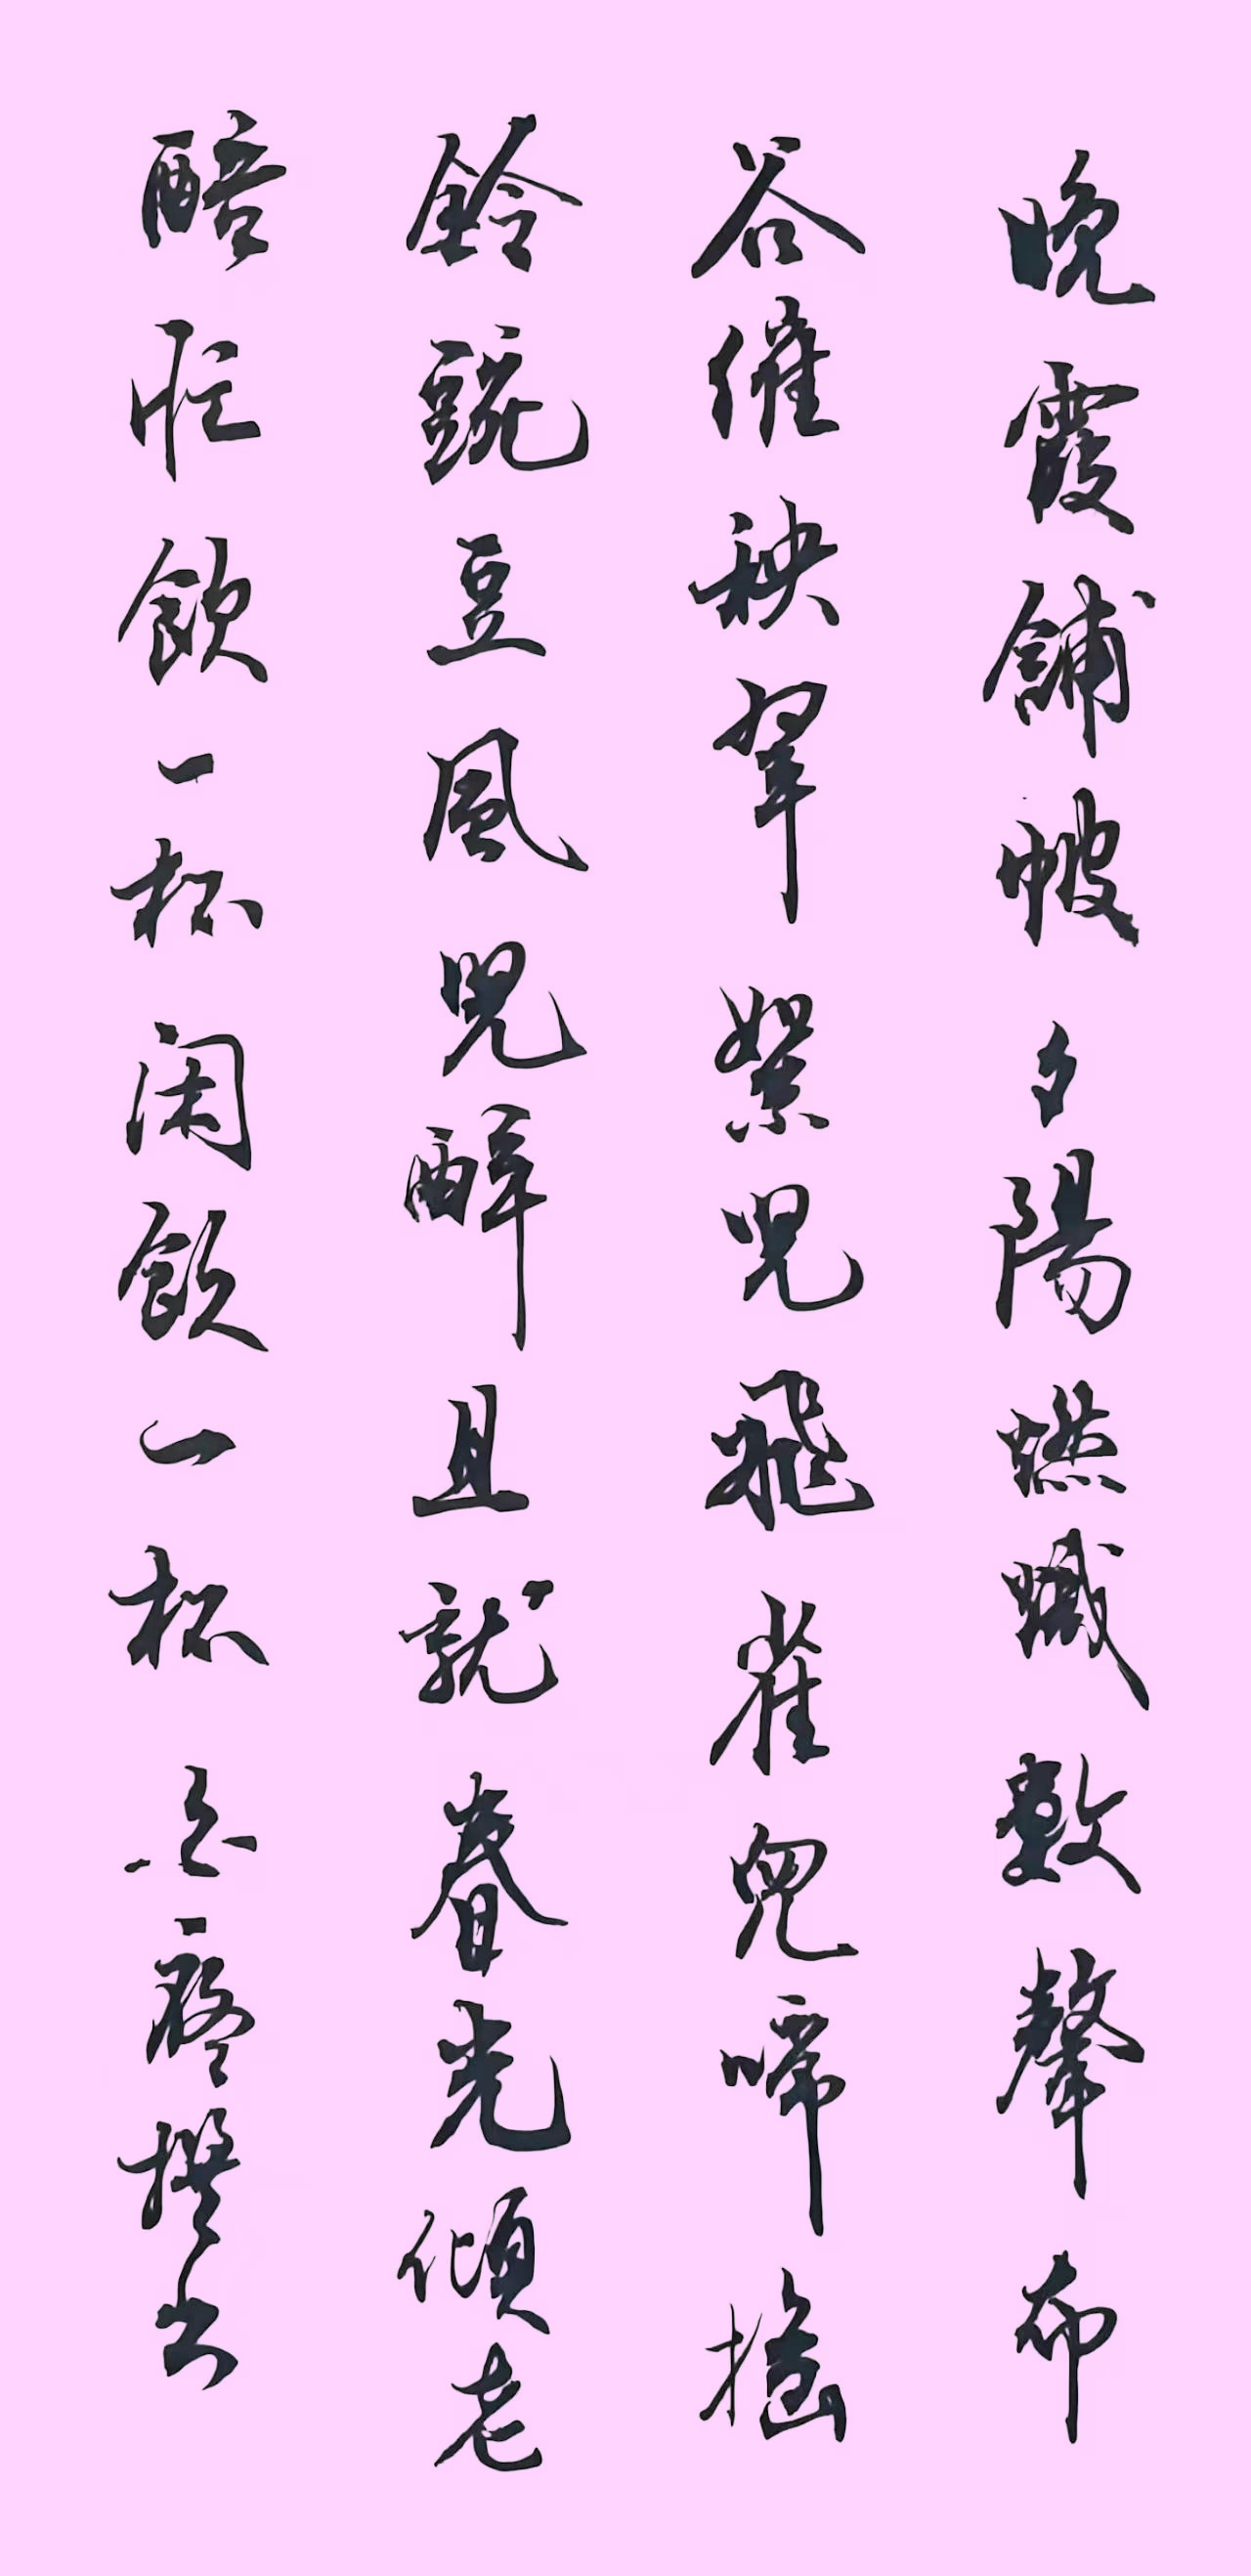 晚霞鋪帔夕陽燃熾數聲布
谷催秧翠絮兒飛雀兒啼搖
鈴豌豆風兒醉且就春光傾老
醅忙飲一杯闲飲一杯撰书